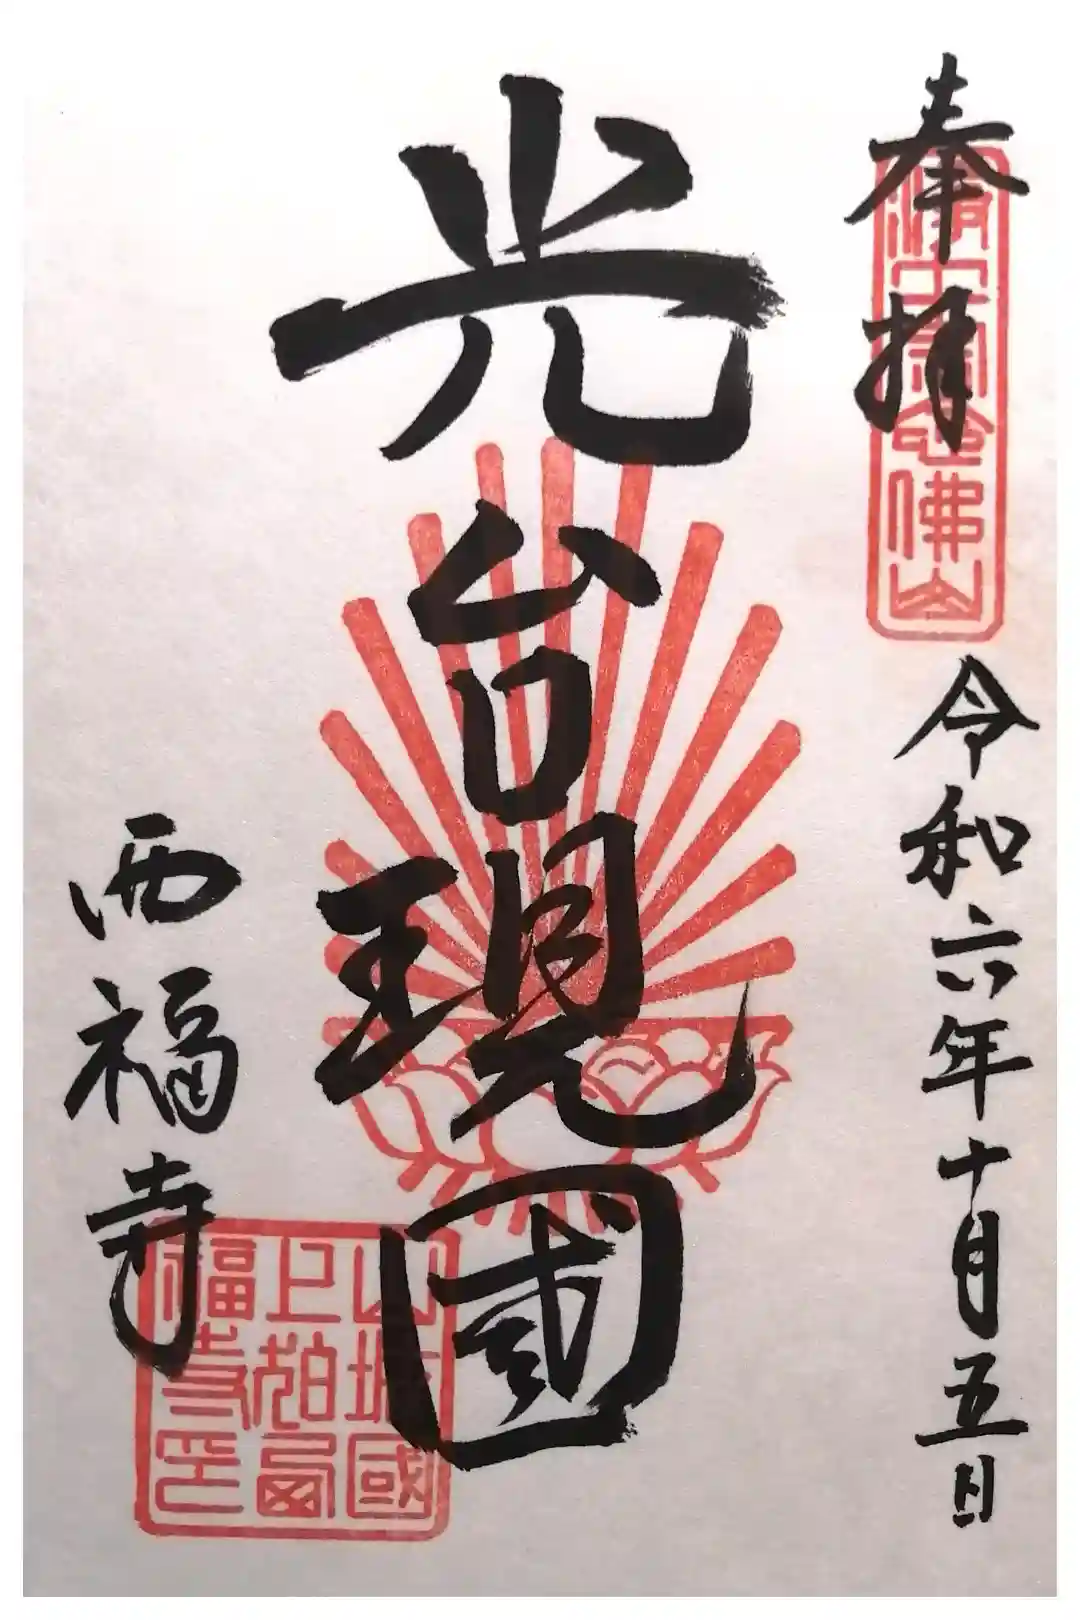 奉拝
淨土宗念佛山
令和六年十月五日
光台現國
西福寺
山城國
上狛西
福寺印